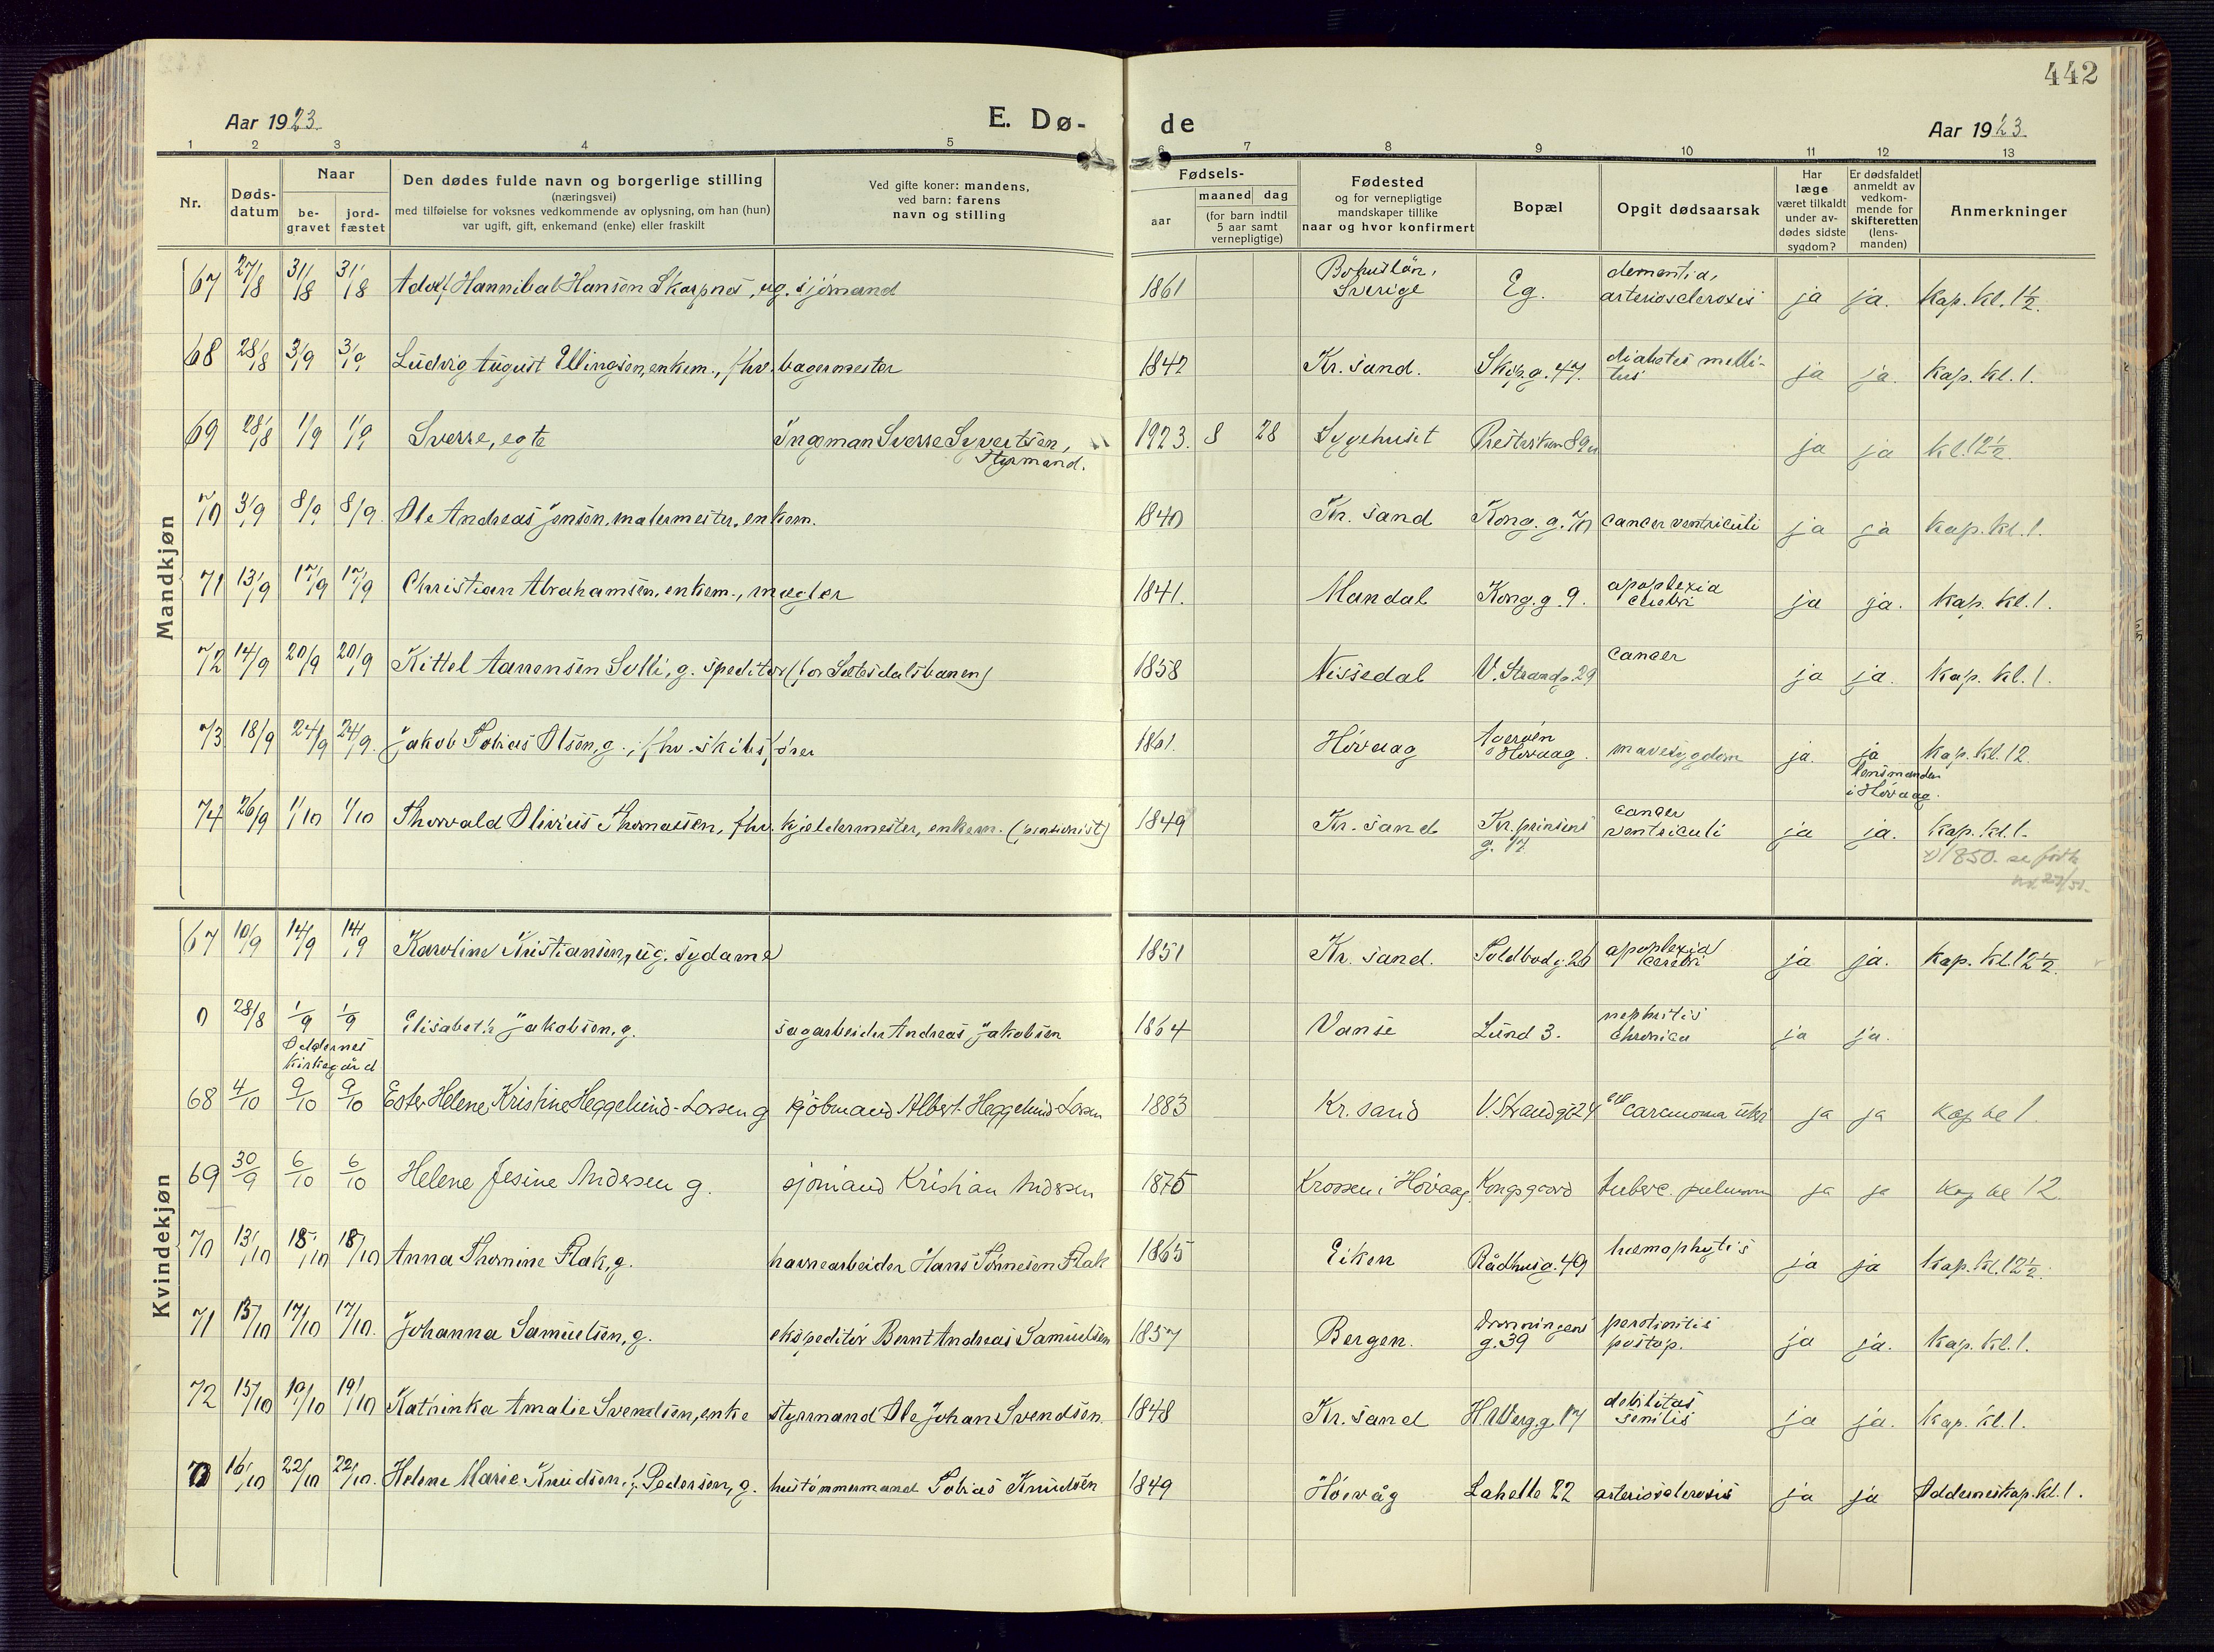 442
Aar 1923.
E. Dø-
de
Aar 1923.
1 2 3 4 5 6 7 8 9 10 11 12 13
Nr.
Døds-
datum
Naar
be-
gravet
jord-
fæstet
Den dødes fulde navn og borgerlige stilling
(næringsvei)
med tilføielse for voksnes vedkommende av oplysning, om han (hun)
var ugift, gift, enkemand (enke) eller fraskilt
Ved gifte koner: mandens,
ved barn: farens
navn og stilling
Fødsels-
aar
maaned dag
(for barn indtil
5 aar samt
vernepligtige)
Fødested
og for vernepligtige
mandskaper tillike
naar og hvor konfirmert
Bopæl
Opgit dødsaarsak
Har
læge
været tilkaldt
under av-
dødes sidste
sygdom?
Er dødsfaldet
anmeldt av
vedkom-
mende for
skifteretten
(lens-
manden)
Anmerkninger
Mandkjøn
67 27/8 31/8 31/8 Adolf Hannibal Hansen Skarpnes, ug. sjömand 1861 Bohuslän, Sverige Eg. dementia, arteriosclerosis ja ja. Kap. kl. 1½.
68 28/8 3/9 3/9 Ludvig August Ellingsen, enkem., fhv. bagermester 1847 Kr. sand. Skip.g. 47. diabetes mellitus ja ja. Kap. kl. 1.
69 28/8 1/9 1/9 Sverre, egte Ingeman Sverre Syvertsen, Styrmand. 1923. 8 28 Sygehuset ja ja kl. 12½.
70 3/9 8/9 8/9. Ole Andreas Jensen, malermester, enkem. 1840 Kr. sand Kong. g. 70 cancer ventriculi ja ja Kap. kl. 1.
71 13/9 17/9 17/9 Christian Abrahamsen, enkem., mægler 1841. Mandal Kong. g. 9. apoplexia cerebri ja ja. Kap. kl. 1.
72 14/9 20/9 20/9 Kittel Aanensen Solli, g. speditør (for Setesdalsbanen) 1858 Nissedal V. Strandg. 29 cancer ja ja. Kap. kl. 1.
73 18/9 24/9 24/9. Jakob Tobias Olsen, g., fhv. skibsfører 1861. Hövaag Hövaag. mavesygdom ja. ja lensmanden i Hövaag. Kap. kl. 12.
74 26/9 1/10 1/10 Thorvald Olivius Thomassen, fhv. kjeldermester, enkem. (pensionist) 1849 Kr. sand Kr. prinsens g. 17 cancer ventriculi ja ja. Kap. kl. 1.
x) 1850. se
Kvindekjøn
67 10/9 14/9 14/9 Karoline Kristiansen, ug. sydame 1851 Kr. sand. Toldbodg. 26 apoplexia cerebri ja ja. Kap. kl. 12½.
0 28/8 1/9 1/9 Elisabeth Jakobsen, g. sagarbeider Andreas Jakobsen 1864 Vanse Lund 3. nephritis chronica ja ja.
Oddernes
kirkegård
68 4/10 9/10 9/10 Ester Helene Kristine Heggelund-Larsen g kjöbmand Albert Heggelund-Larsen 1883 Kr. sand V. Strandgt 24 carcinoma uteri ja ja Kap kl 1.
69 30/9 6/10 6/10 Helene Jesine Andersen g. sjömand Kristian Andersen 1876 Krossen i Hövaag Kongsgaard tuberc. pulmon ja ja Kap kl 12.
70 13/10 18/10 18/10 Anna Thomine Flak, g. havnearbeider Hans Tönnesen Flak 1865 Eiken Rådhusg. 49 hæmophytis ja ja Kap. kl. 12½.
71 13/10 17/10 17/10. Johanna Samuelsen, g. ekspeditör Bernt Andreas Samuelsen 1857 Bergen. Dronningens g. 39 peritonitis postop. ja ja. Kap. kl. 1.
72 15/10 19/10 19/10 Kathinka Amalie Svendsen, enke styrmand Ole Johan Svendsen. 1848 Kr. sand H. Werg.g. 17 debilitas senilis ja ja. Kap. kl. 1.
16/10 22/10 22/10. Helene Marie Knudsen, f. Pedersen, g. hustömmermand Tobias Knudsen 1849 Höivåg Lahelle 22 arteriosclerosis ja ja Oddernes kap. kl. 1.